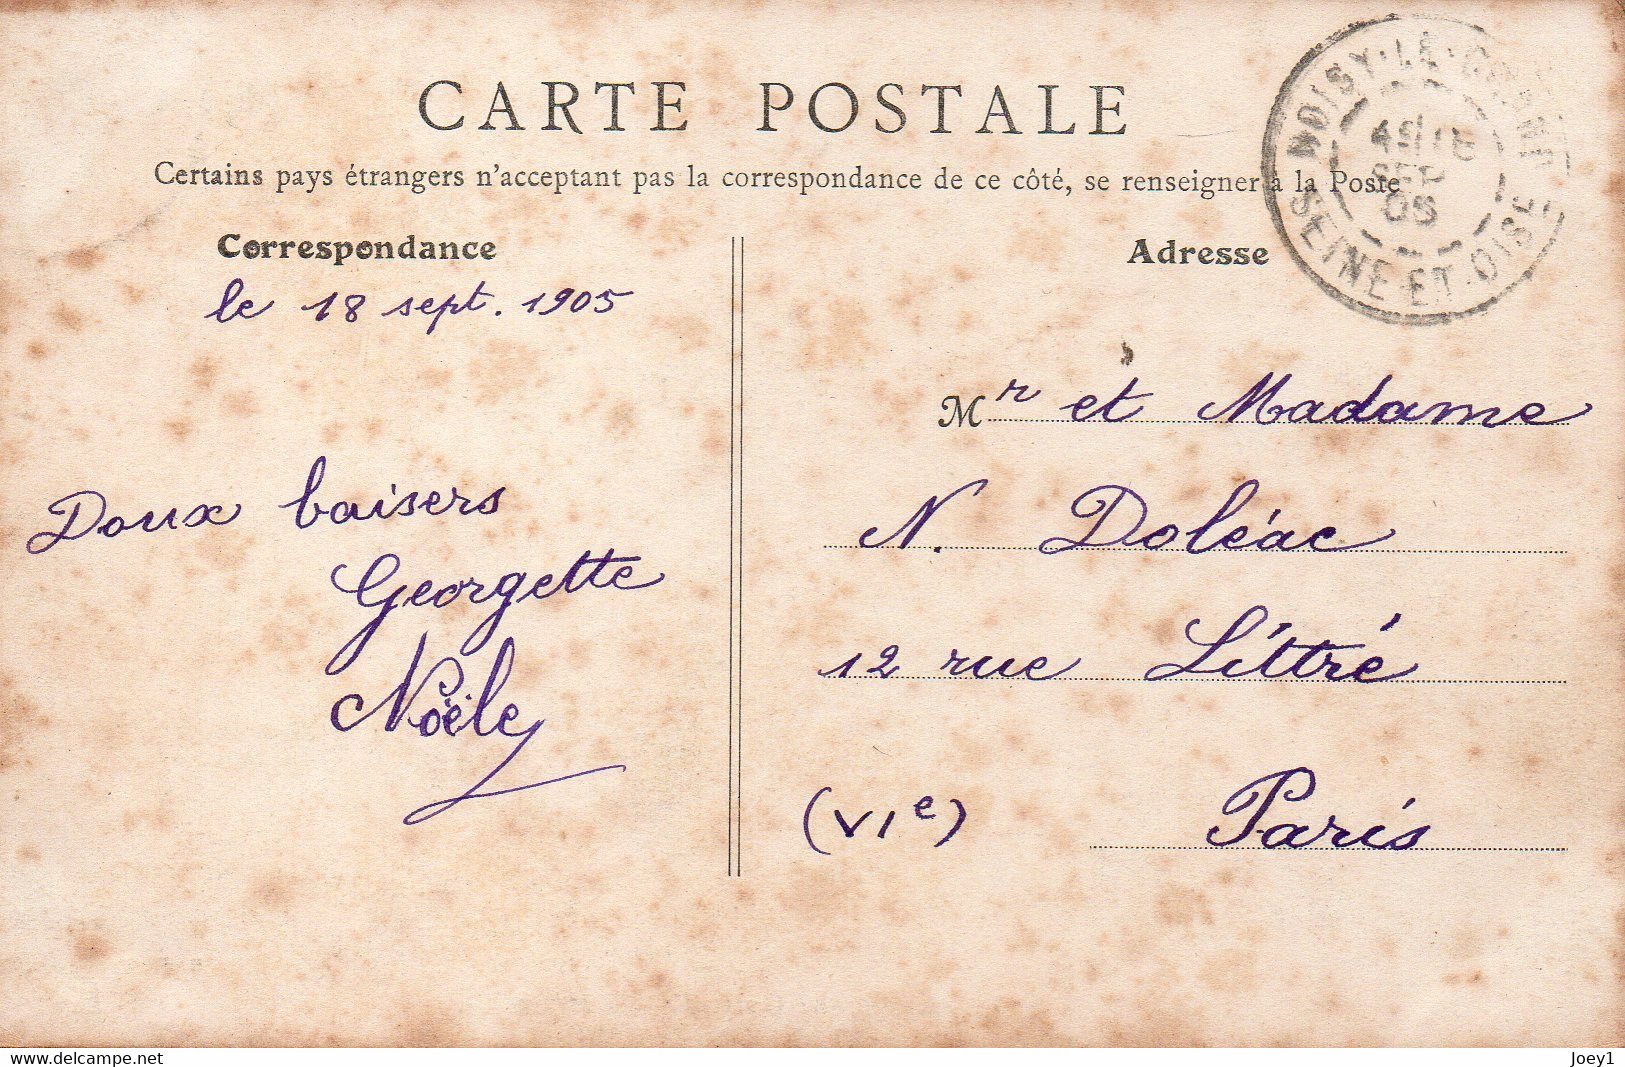 CARTE POSTALE
Certains pays étrangers n'acceptant pas la correspondance de ce côté, se renseigner à la Poste
Correspondance
le 18 sept. 1905
Doux baisers
Georgette
Noële
Adresse
Mr et Madame
N. Doléac
12 rue Littré
(VIe) Paris
NOISY-LE-GRAND
SEP
05
SEINE-ET-OISE
www.delcampe.net
Joey1